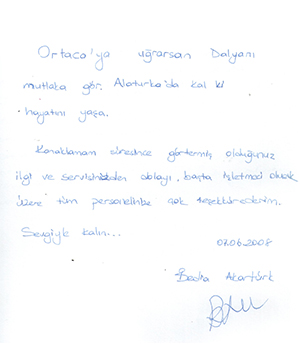 Ortaca'ya uğrarsan Dalyanı
mutlaka gör, Alaturka'da kal ki
hayatını yaşa.
Konaklamam süresince göstermiş olduğunuz
ilgi ve servisinizden dolayı, başta işletmeci olmak
üzere tüm personelinize çok teşekkür ederim.
Sevgiyle kalın...
07.06.2008
Akartürk